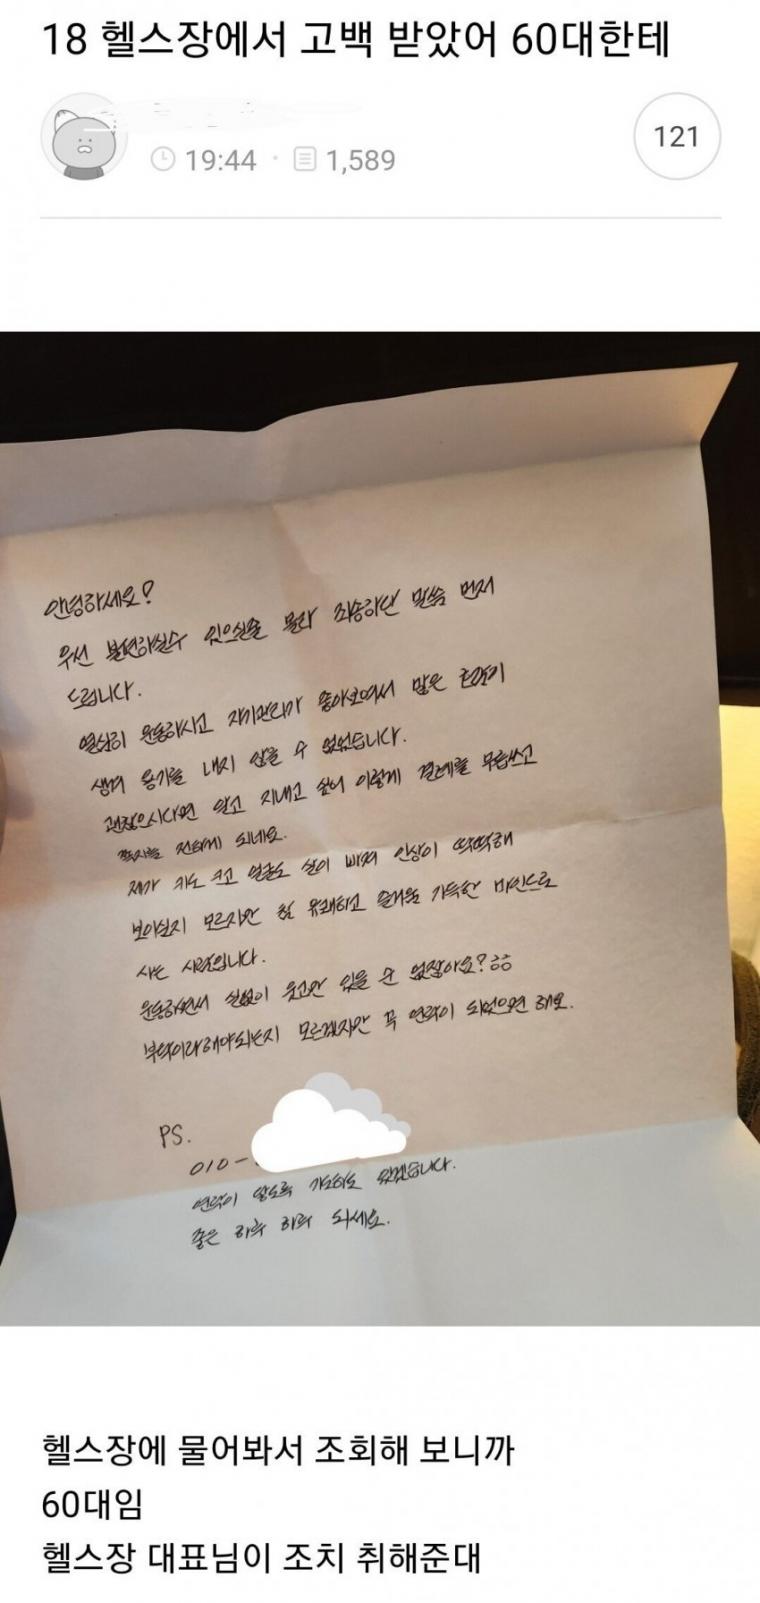 18 헬스장에서 고백 받았어 60대한테
19:44 · 1,589
121
안녕하세요?
우선 불편하실수 있으실줄 몰라 죄송하단 말씀 먼저
드립니다.
열심히 운동하시고 자기관리가 좋아보여서 많은
생겨 용기를 내지 않을 수 없었습니다.
괜찮으시다면 알고 지내고 싶어 이렇게 결례를 무릅쓰고
쪽지를 전하게 되네요.
제가 키도 크고 얼굴도 살이 빠져 인상이 딱딱해
보이실지 모르지만 참 유쾌하고 즐거움 가득한 마인드로
사는 사람입니다.
운동하면서 실없이 웃고만 있을 순 없잖아요?
부탁이라해야되는지 모르겠지만 꼭 연락이 되었으면 해요.
PS.
010-
연락이 닿도록 기도하도 있겠습니다.
좋은 하루 하루 되세요.
헬스장에 물어봐서 조회해 보니까
60대임
헬스장 대표님이 조치 취해준대